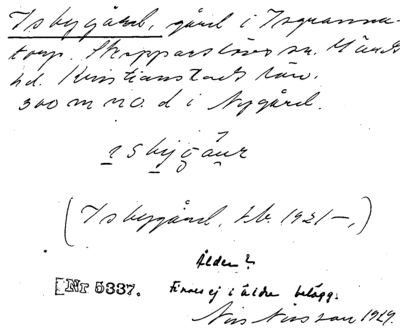 Isbygård, gård i Ingvanna-
torp. Skepparslövs sn. Gärds
hd. Kristianstads län.
300 m no. d i Nygård.
isbygåur
(Isbygård, Lb. 1921–,)
Ålder?
[Nr 5337. Finnes ej i äldre belägg.
Nils Nilsson 1929.